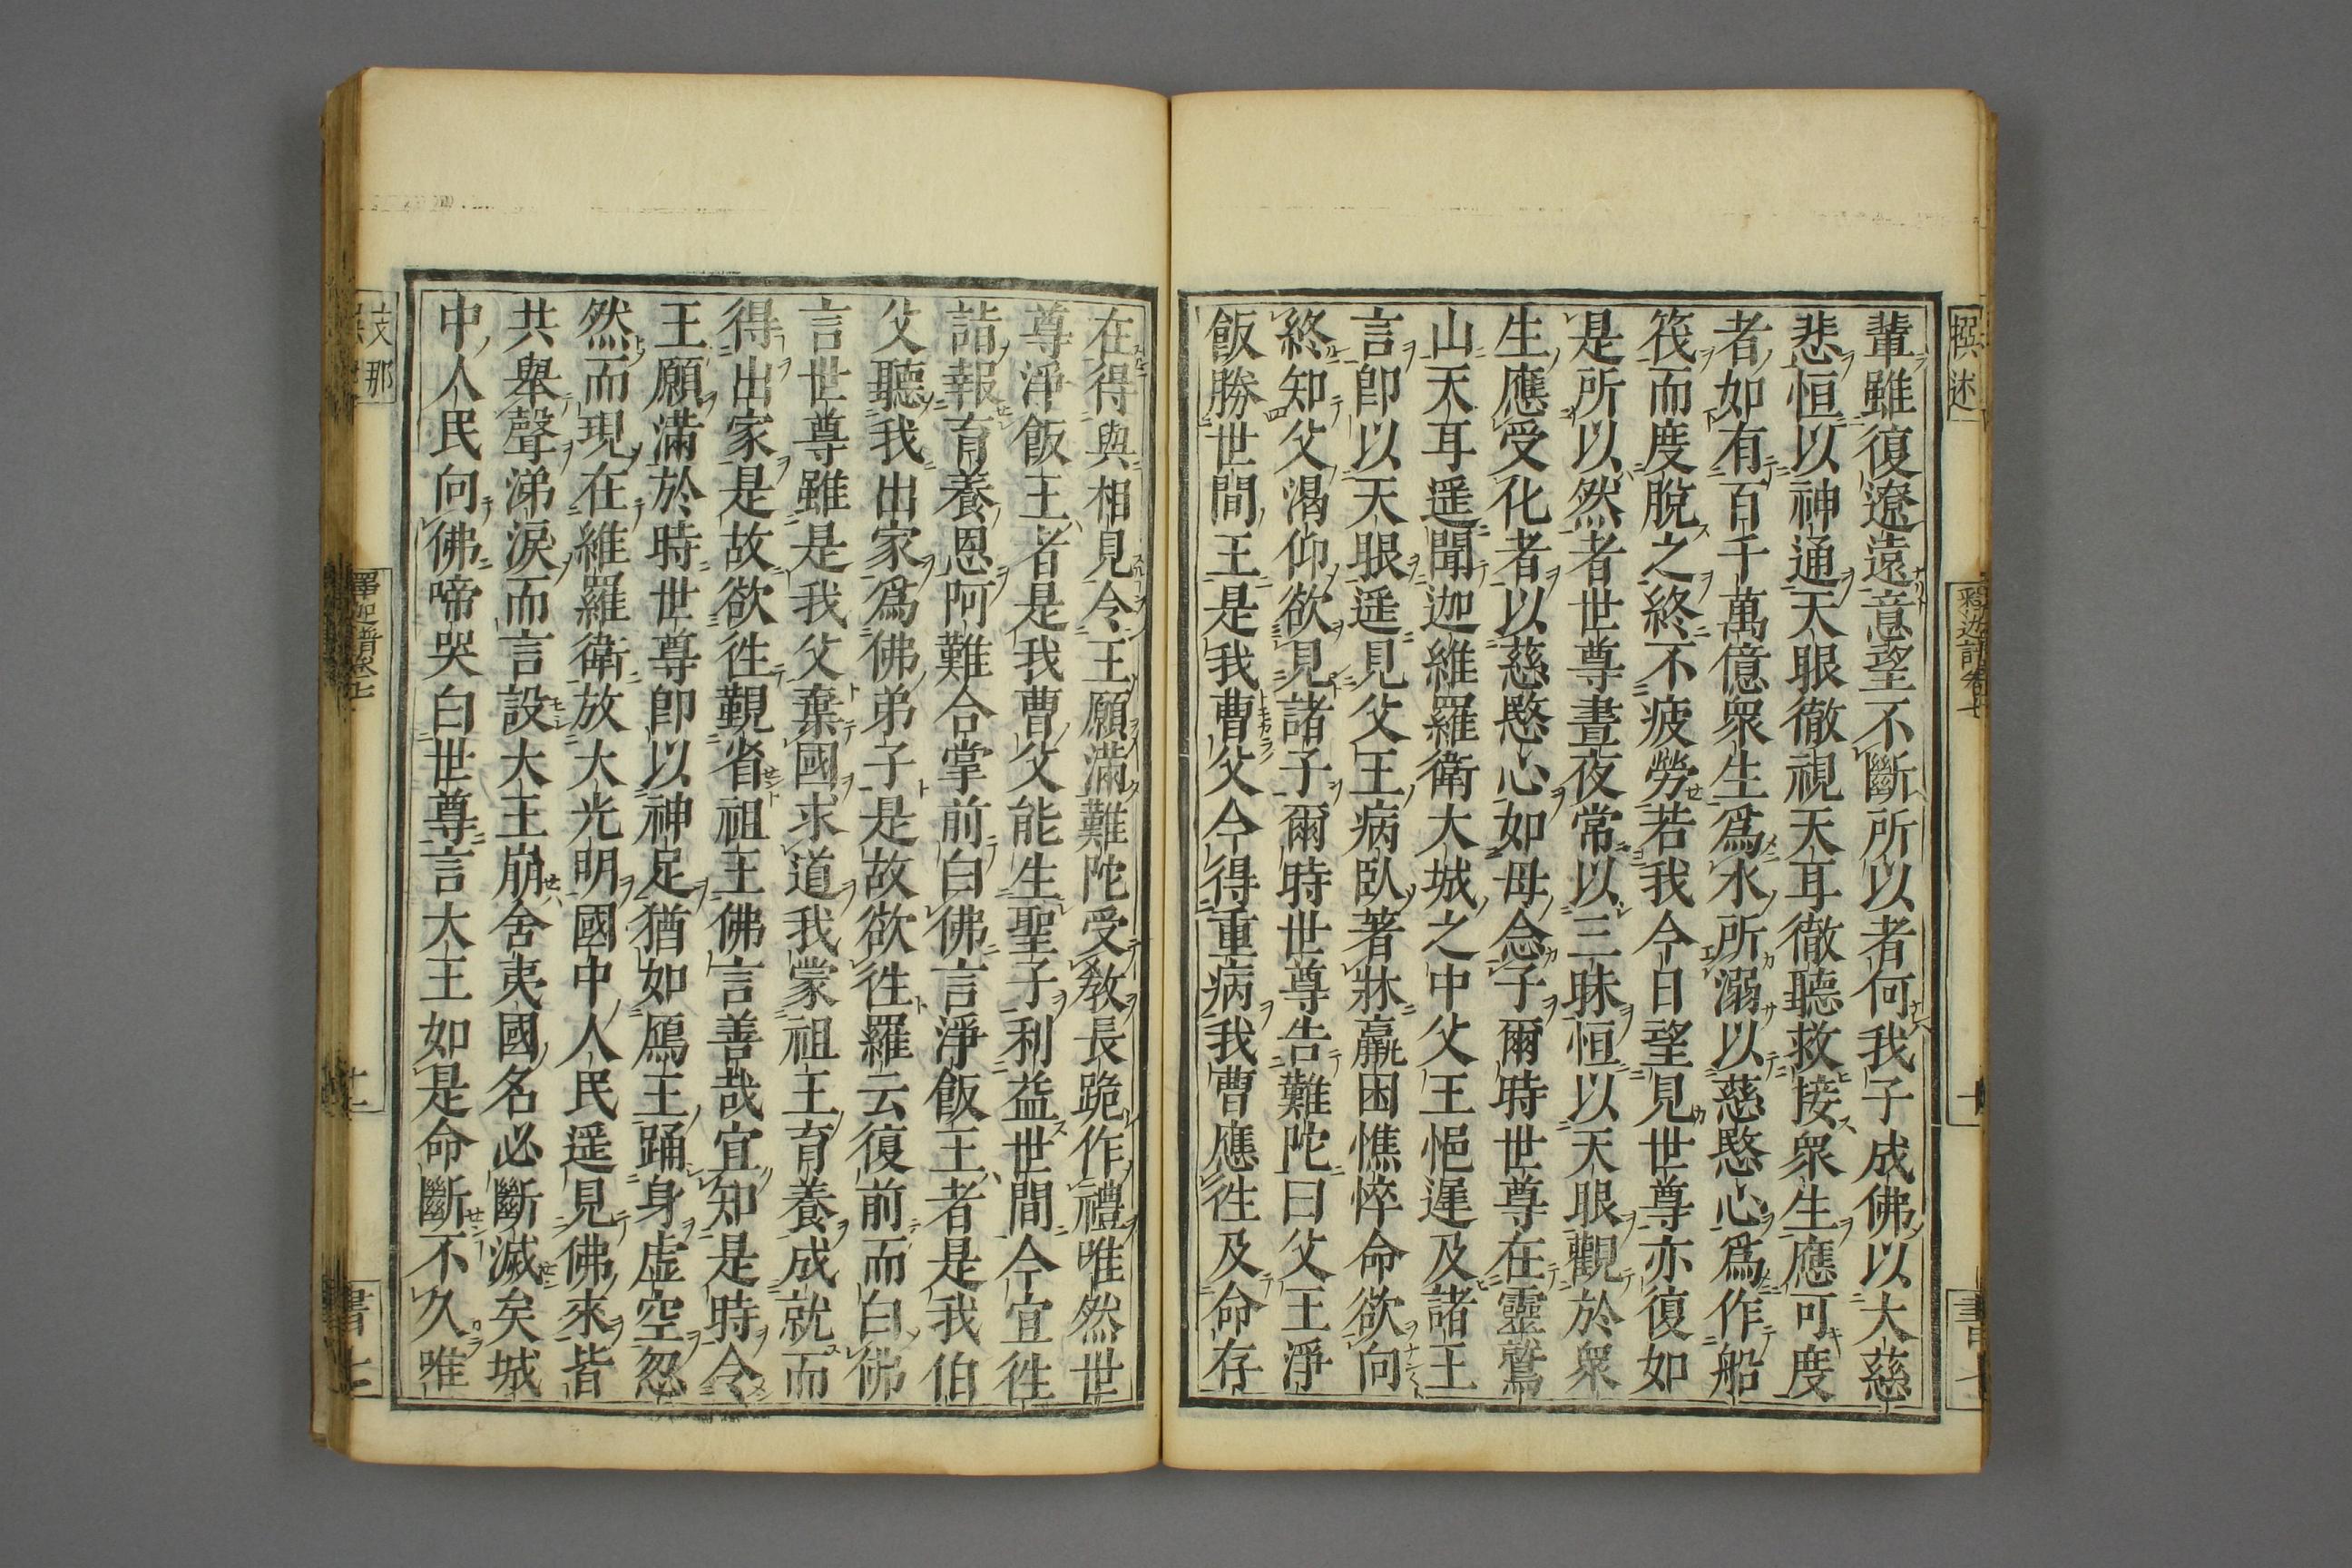 撰述
釋迦譜卷七
輩雖復遼遠意望不斷所以者何我子成佛以大慈
悲恒以神通天眼徹視天耳徹聽救接衆生應可度
者如有百千萬億衆生爲水所溺以慈愍心爲作船
筏而度脫之終不疲勞若我今日望見世尊亦復如
是所以然者世尊晝夜常以三昧恒以天眼觀於衆
生應受化者以慈愍心如母念子爾時世尊在靈鷲
山天耳遥聞迦維羅衛大城之中父王悒遲及諸王
言即以天眼遥見父王病臥著牀羸困憔悴命欲向
終知父渴仰欲見諸子爾時世尊告難陀曰父王淨
飯勝世間王是我曹父今得重病我曹應徃及命存
在得與相見令王願滿難陀受教長跪作禮唯然世
尊淨飯王者是我曹父能生聖子利益世間今宜徃
詣報育養恩阿難合掌前白佛言淨飯王者是我伯
父聽我出家爲佛弟子是故欲徃羅云復前而白佛
言世尊雖是我父棄國求道我蒙祖王育養成就而
得出家是故欲徃覲省祖王佛言善哉宜知是時令
王願滿於時世尊即以神足猶如鴈王踊身虛空忽
然而現在維羅衛放大光明國中人民遥見佛來皆
共舉聲涕淚而言設大王崩舍夷國名必斷滅矣城
中人民向佛啼哭白世尊言大王如是命斷不久唯
支那
釋迦譜卷七
十一
書七